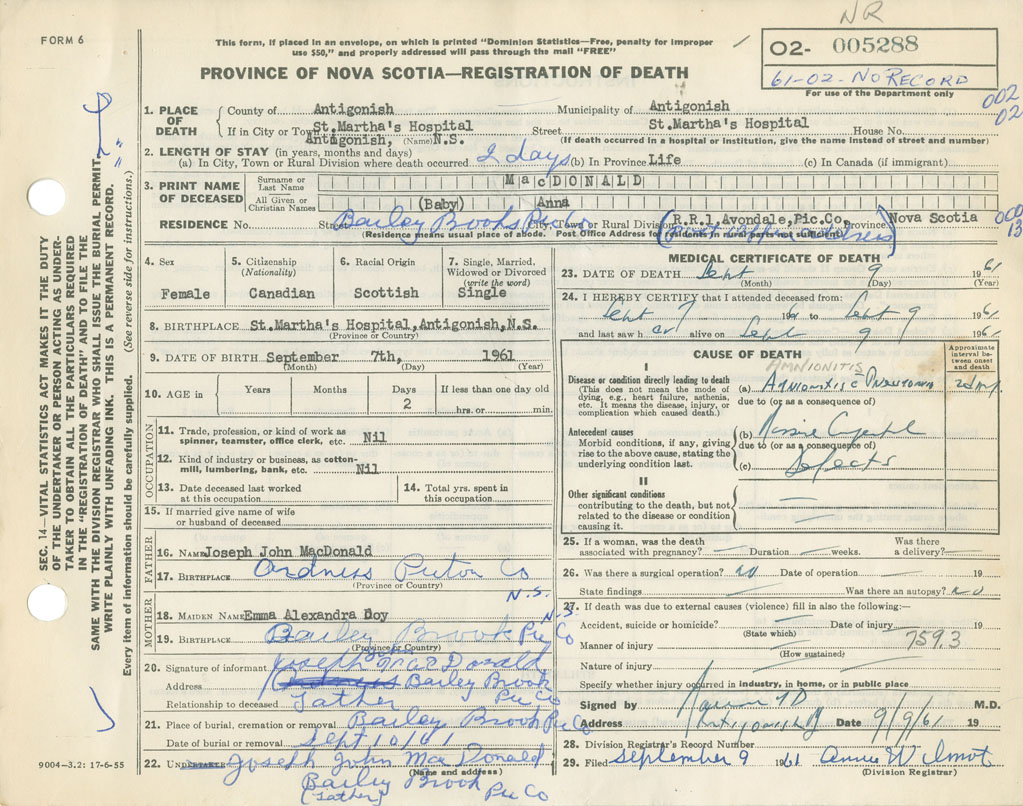 NR
FORM 6
This form, if placed in an envelope, on which is printed "Dominion Statistics—Free, penalty for improper
use $50," and properly addressed will pass through the mail "FREE"
02- 005288
61-02-NO RECORD
For use of the Department only
PROVINCE OF NOVA SCOTIA—REGISTRATION OF DEATH
002
02
1. PLACE OF DEATH
County of Antigonish Municipality of Antigonish
If in City or Town St.Martha's Hospital Street St.Martha's Hospital House No.
Antigonish, (Name) N.S. (If death occurred in a hospital or institution, give the name instead of street and number)
2. LENGTH OF STAY (in years, months and days)
(a) In City, Town or Rural Division where death occurred 2 days (b) In Province Life (c) In Canada (if immigrant)
3. PRINT NAME OF DECEASED
Surname or Last Name MacDONALD
All Given or Christian Names (Baby) Anna
RESIDENCE No. Street Bailey Brook Pic Co City, Town or Rural Division R.R.1 Avondale, Pic.Co. Province Nova Scotia
000
13
(Residence means usual place of abode. Post Office Address for residents in rural parts not sufficient)
4. Sex
Female
5. Citizenship
(Nationality)
Canadian
6. Racial Origin
Scottish
7. Single, Married,
Widowed or Divorced
(write the word)
Single
8. BIRTHPLACE St.Martha's Hospital, Antigonish, N.S.
(Province or Country)
9. DATE OF BIRTH September 7th, 1961
(Month) (Day) (Year)
10. AGE in
Years
Months
Days
2
If less than one day old
hrs. or min.
OCCUPATION
11. Trade, profession, or kind of work as
spinner, teamster, office clerk, etc. Nil
12. Kind of industry or business, as cotton-
mill, lumbering, bank, etc. Nil
13. Date deceased last worked
at this occupation
14. Total yrs. spent in
this occupation
15. If married give name of wife
or husband of deceased
FATHER
16. NAME Joseph John MacDonald
17. BIRTHPLACE Ardness Pictou Co
(Province or Country)
N.S.
MOTHER
18. MAIDEN NAME Emma Alexandra Doy
N.S.
19. BIRTHPLACE Bailey Brook Pic Co
(Province or Country)
20. Signature of informant Joseph John MacDonald
Address Bailey Brook
Pic Co
Relationship to deceased Father
21. Place of burial, cremation or removal Bailey Brook Pic Co
Date of burial or removal Sept 10/61
22. UNDERTAKER Joseph John MacDonald
(Name and address)
Bailey Brook
(Father) Pic Co
MEDICAL CERTIFICATE OF DEATH
23. DATE OF DEATH Sept 9 1961
(Month) (Day) (Year)
24. I HEREBY CERTIFY that I attended deceased from:
Sept 7 19 to Sept 9 1961
and last saw her alive on Sept 9 1961
CAUSE OF DEATH
Approximate
interval be-
tween onset
and death
I
AMNIONITIS
Disease or condition directly leading to death
(This does not mean the mode of
dying, e.g., heart failure, asthenia,
etc. It means the disease, injury, or
complication which caused death.)
(a) Amnionitis c Pneumonia 2 days
due to (or as a consequence of)
Antecedent causes
Morbid conditions, if any, giving
rise to the above cause, stating the
underlying condition last.
(b) Massive Congenital
due to (or as a consequence of)
(c) Defects
II
Other significant conditions
contributing to the death, but not
related to the disease or condition
causing it.
25. If a woman, was the death
associated with pregnancy? Duration weeks. Was there
a delivery?
26. Was there a surgical operation? no Date of operation 19
State findings Was there an autopsy? no
27. If death was due to external causes (violence) fill in also the following:—
Accident, suicide or homicide? Date of injury 19
(State which)
Manner of injury 759.3
(How sustained)
Nature of injury
Specify whether injury occurred in industry, in home, or in public place
Signed by M.D.
Address Antigonish Date 9/9/61 19
28. Division Registrar's Record Number
29. Filed September 9 1961 Annie Wilmot
(Division Registrar)
SEC. 14—VITAL STATISTICS ACT MAKES IT THE DUTY
OF THE UNDERTAKER OR PERSON ACTING AS UNDER-
TAKER TO OBTAIN ALL THE PARTICULARS REQUIRED
IN THE "REGISTRATION OF DEATH" AND TO FILE THE
SAME WITH THE DIVISION REGISTRAR WHO SHALL ISSUE THE BURIAL PERMIT.
WRITE PLAINLY WITH UNFADING INK. THIS IS A PERMANENT RECORD.
Every item of information should be carefully supplied. (See reverse side for instructions.)
9004-3.2: 17-6-55